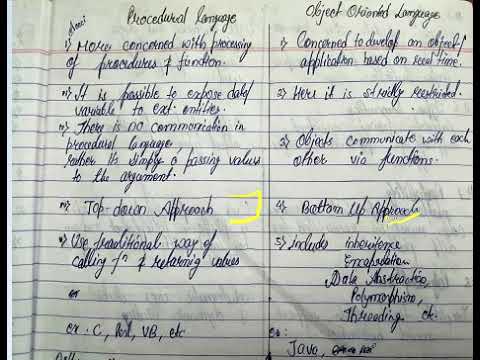 Procedural Language
i) More concerned with processing
of procedures & function.
ii) It is possible to expose data/
variable to ext. entities.
iii) There is no communication in
procedural language
rather its simply a passing values
to the argument.
iv) Top-down Approach
v) Use traditional way of
calling fⁿ & returning values
ex: C, Perl, VB, etc
Object Oriented Language
1) Concerned to develop an object/
application based on real time.
2) Here it is strictly restricted.
3) Objects communicate with each
other via functions.
4) Bottom Up Approach
5) Includes inheritence
Encapsulation
Data Abstraction,
Polymorphism,
Threading etc.
ex:
Java,